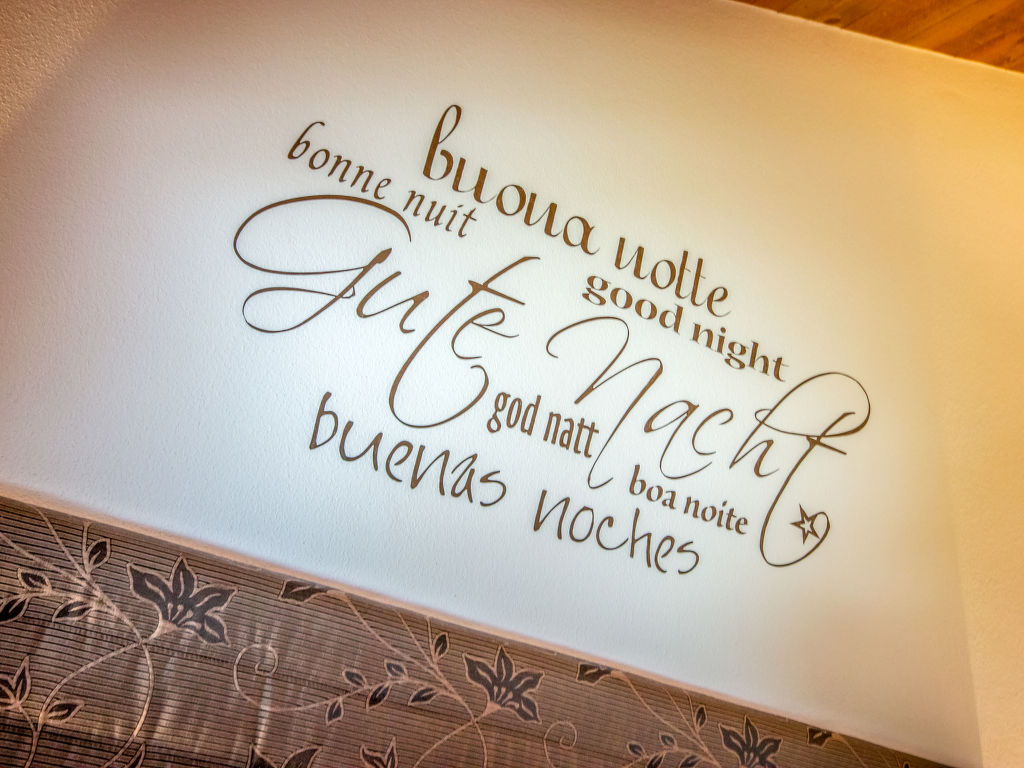 buona notte
bonne nuit
good night
Gute Nacht
god natt
boa noite
buenas noches